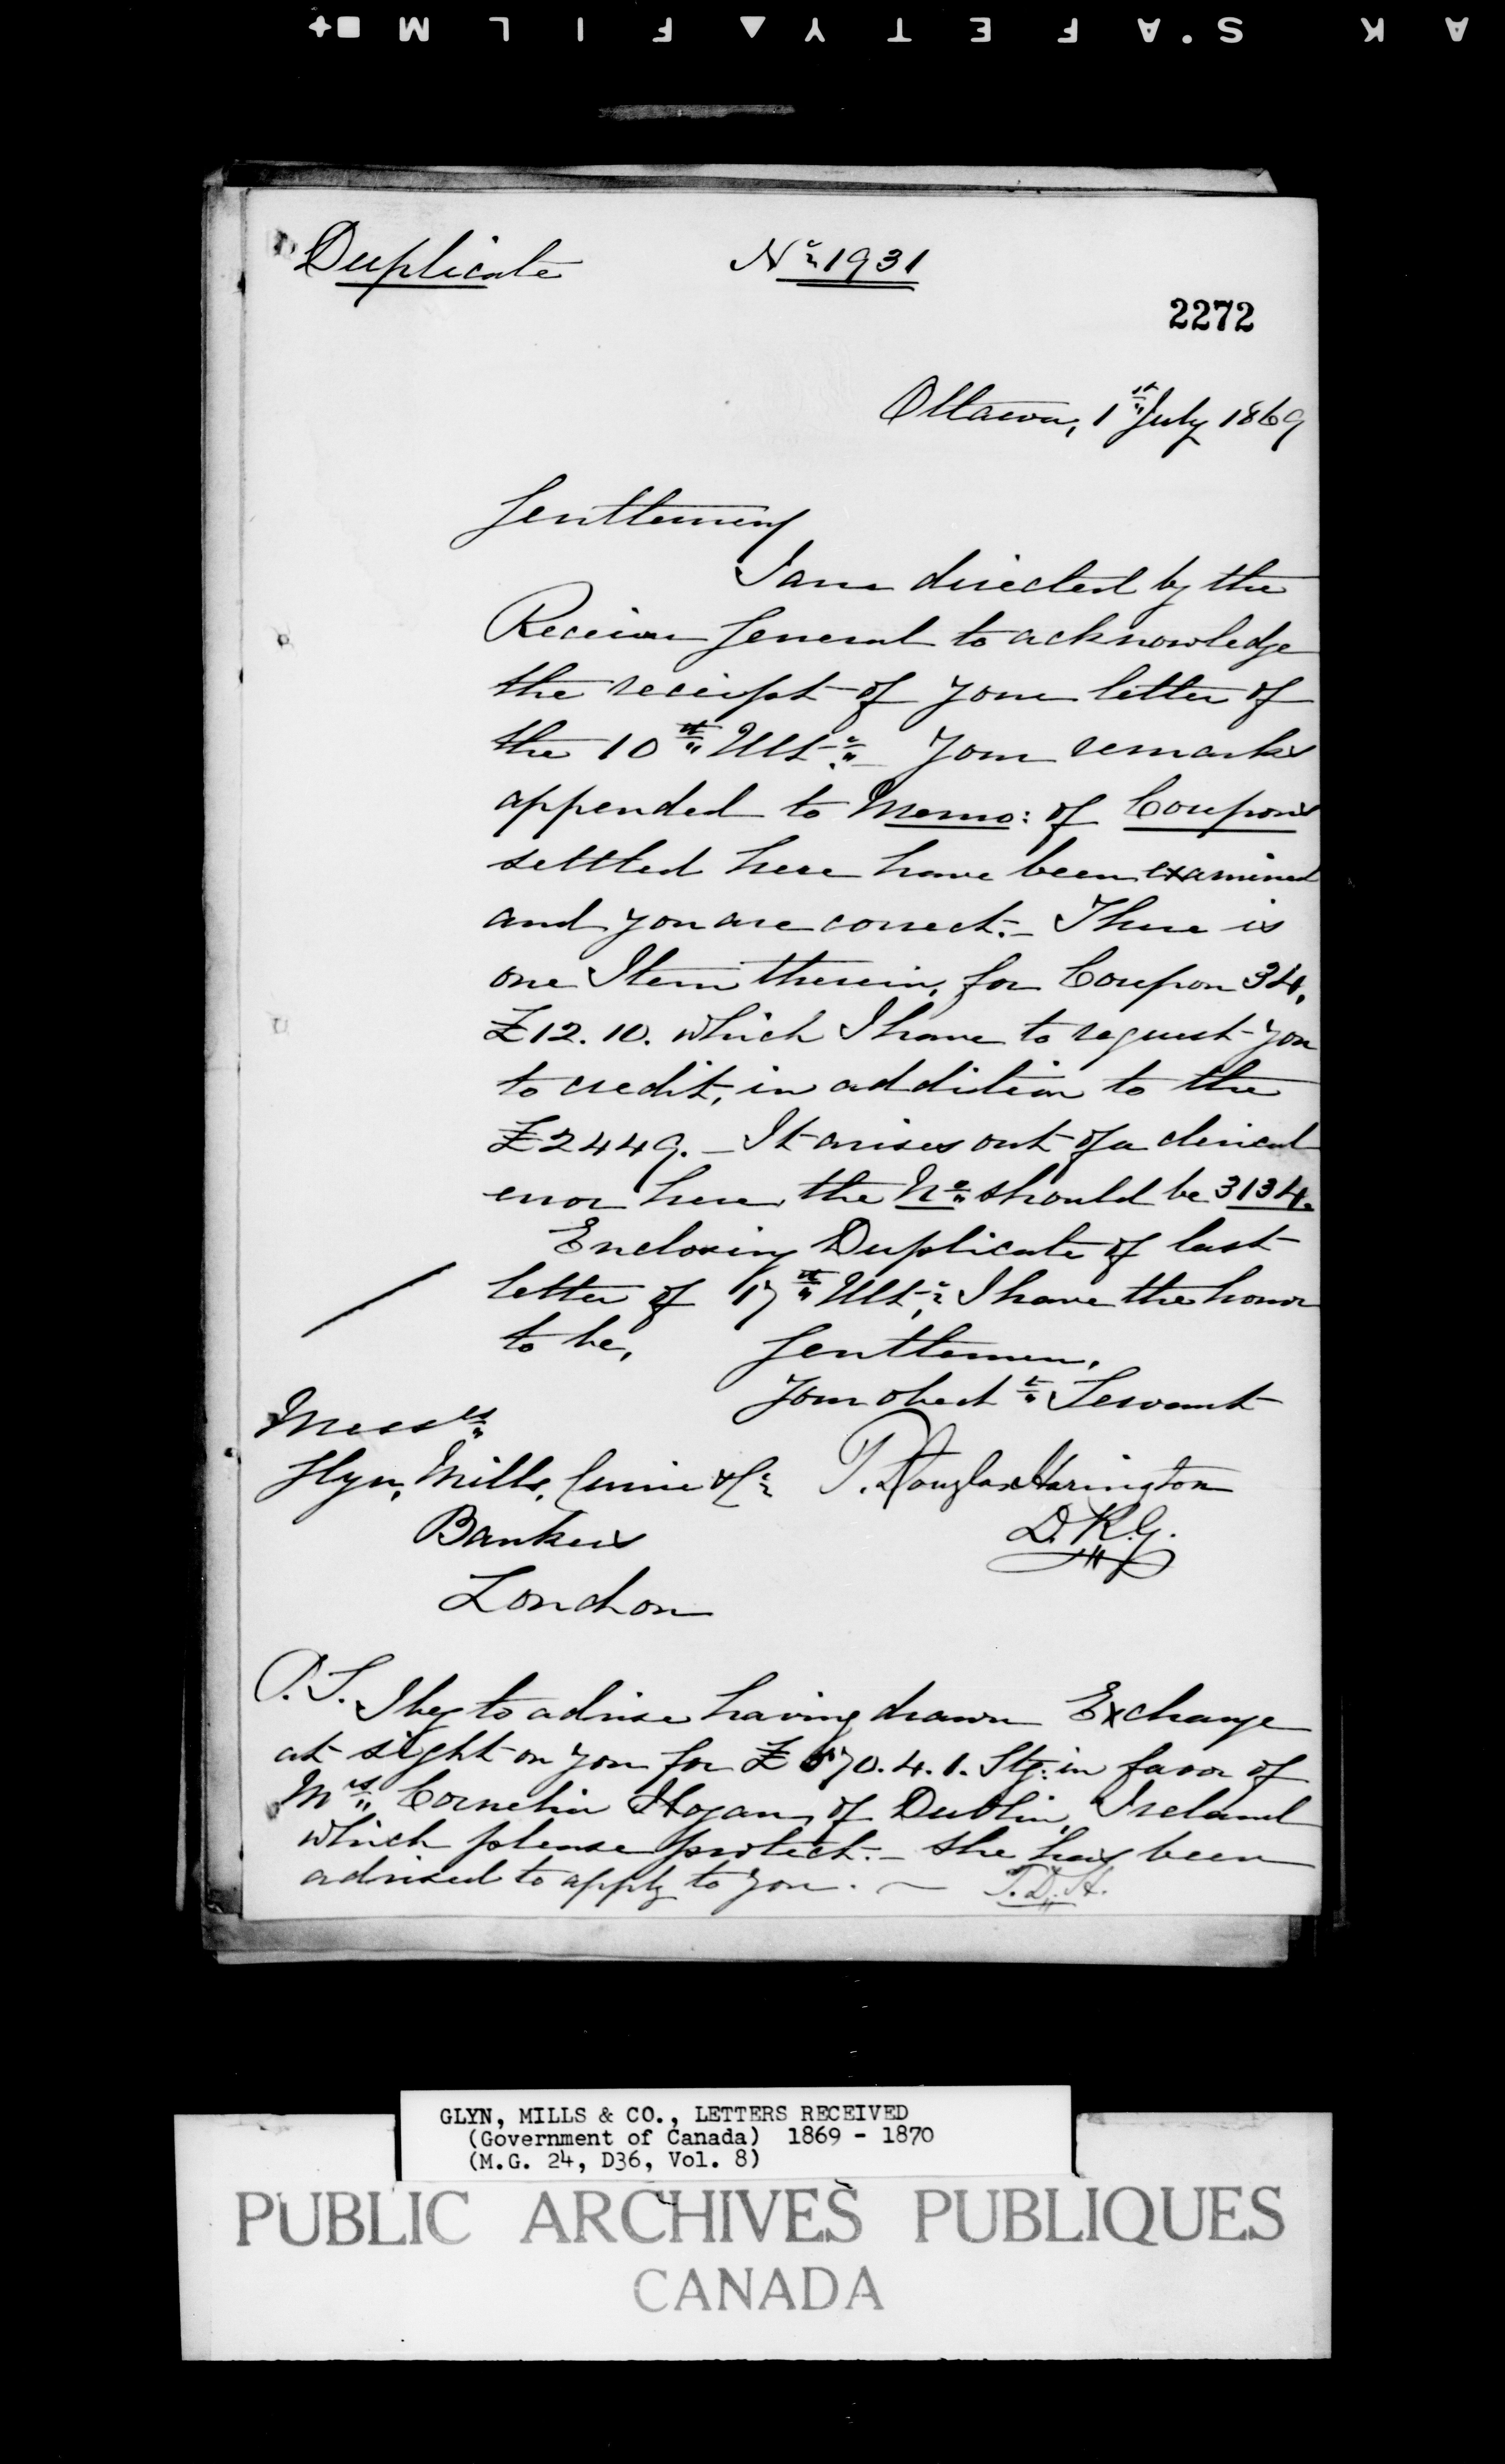 A K S'AFETY▲FILM■+
Duplicate
No 1931
2272
Ottawa, 1st July 1869
Gentlemen
I am directed by the
Receiver General to acknowledge
the receipt of your letter of
the 10th Ulto. Your remarks
appended to Memo: of Coupons
settled here have been examined
and you are correct.- There is
one Item therein, for Coupon 34,
£12.10. which I have to request you
to credit, in addition to the
£2449.- It arises out of a clerical
error here, the No should be 3134.
Enclosing Duplicate of last
letter of 17th Ulto, I have the honor
to be,
Gentlemen,
Your obedt Servant
T. Douglas Harington
D.R.G.
Messrs
Glyn, Mills, Currie & Co
Bankers
London
P.S. I beg to advise having drawn Exchange
at sight on you for £ 70.4.1. Stg: in favor of
Mrs Cornelia Hogan, of Dublin, Ireland
which please protect.- She has been
advised to apply to you. — T.D.H.
GLYN, MILLS & CO., LETTERS RECEIVED
(Government of Canada) 1869 - 1870
(M.G. 24, D36, Vol. 8)
PUBLIC ARCHIVES PUBLIQUES
CANADA